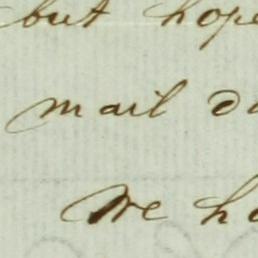 but hope
mail
We